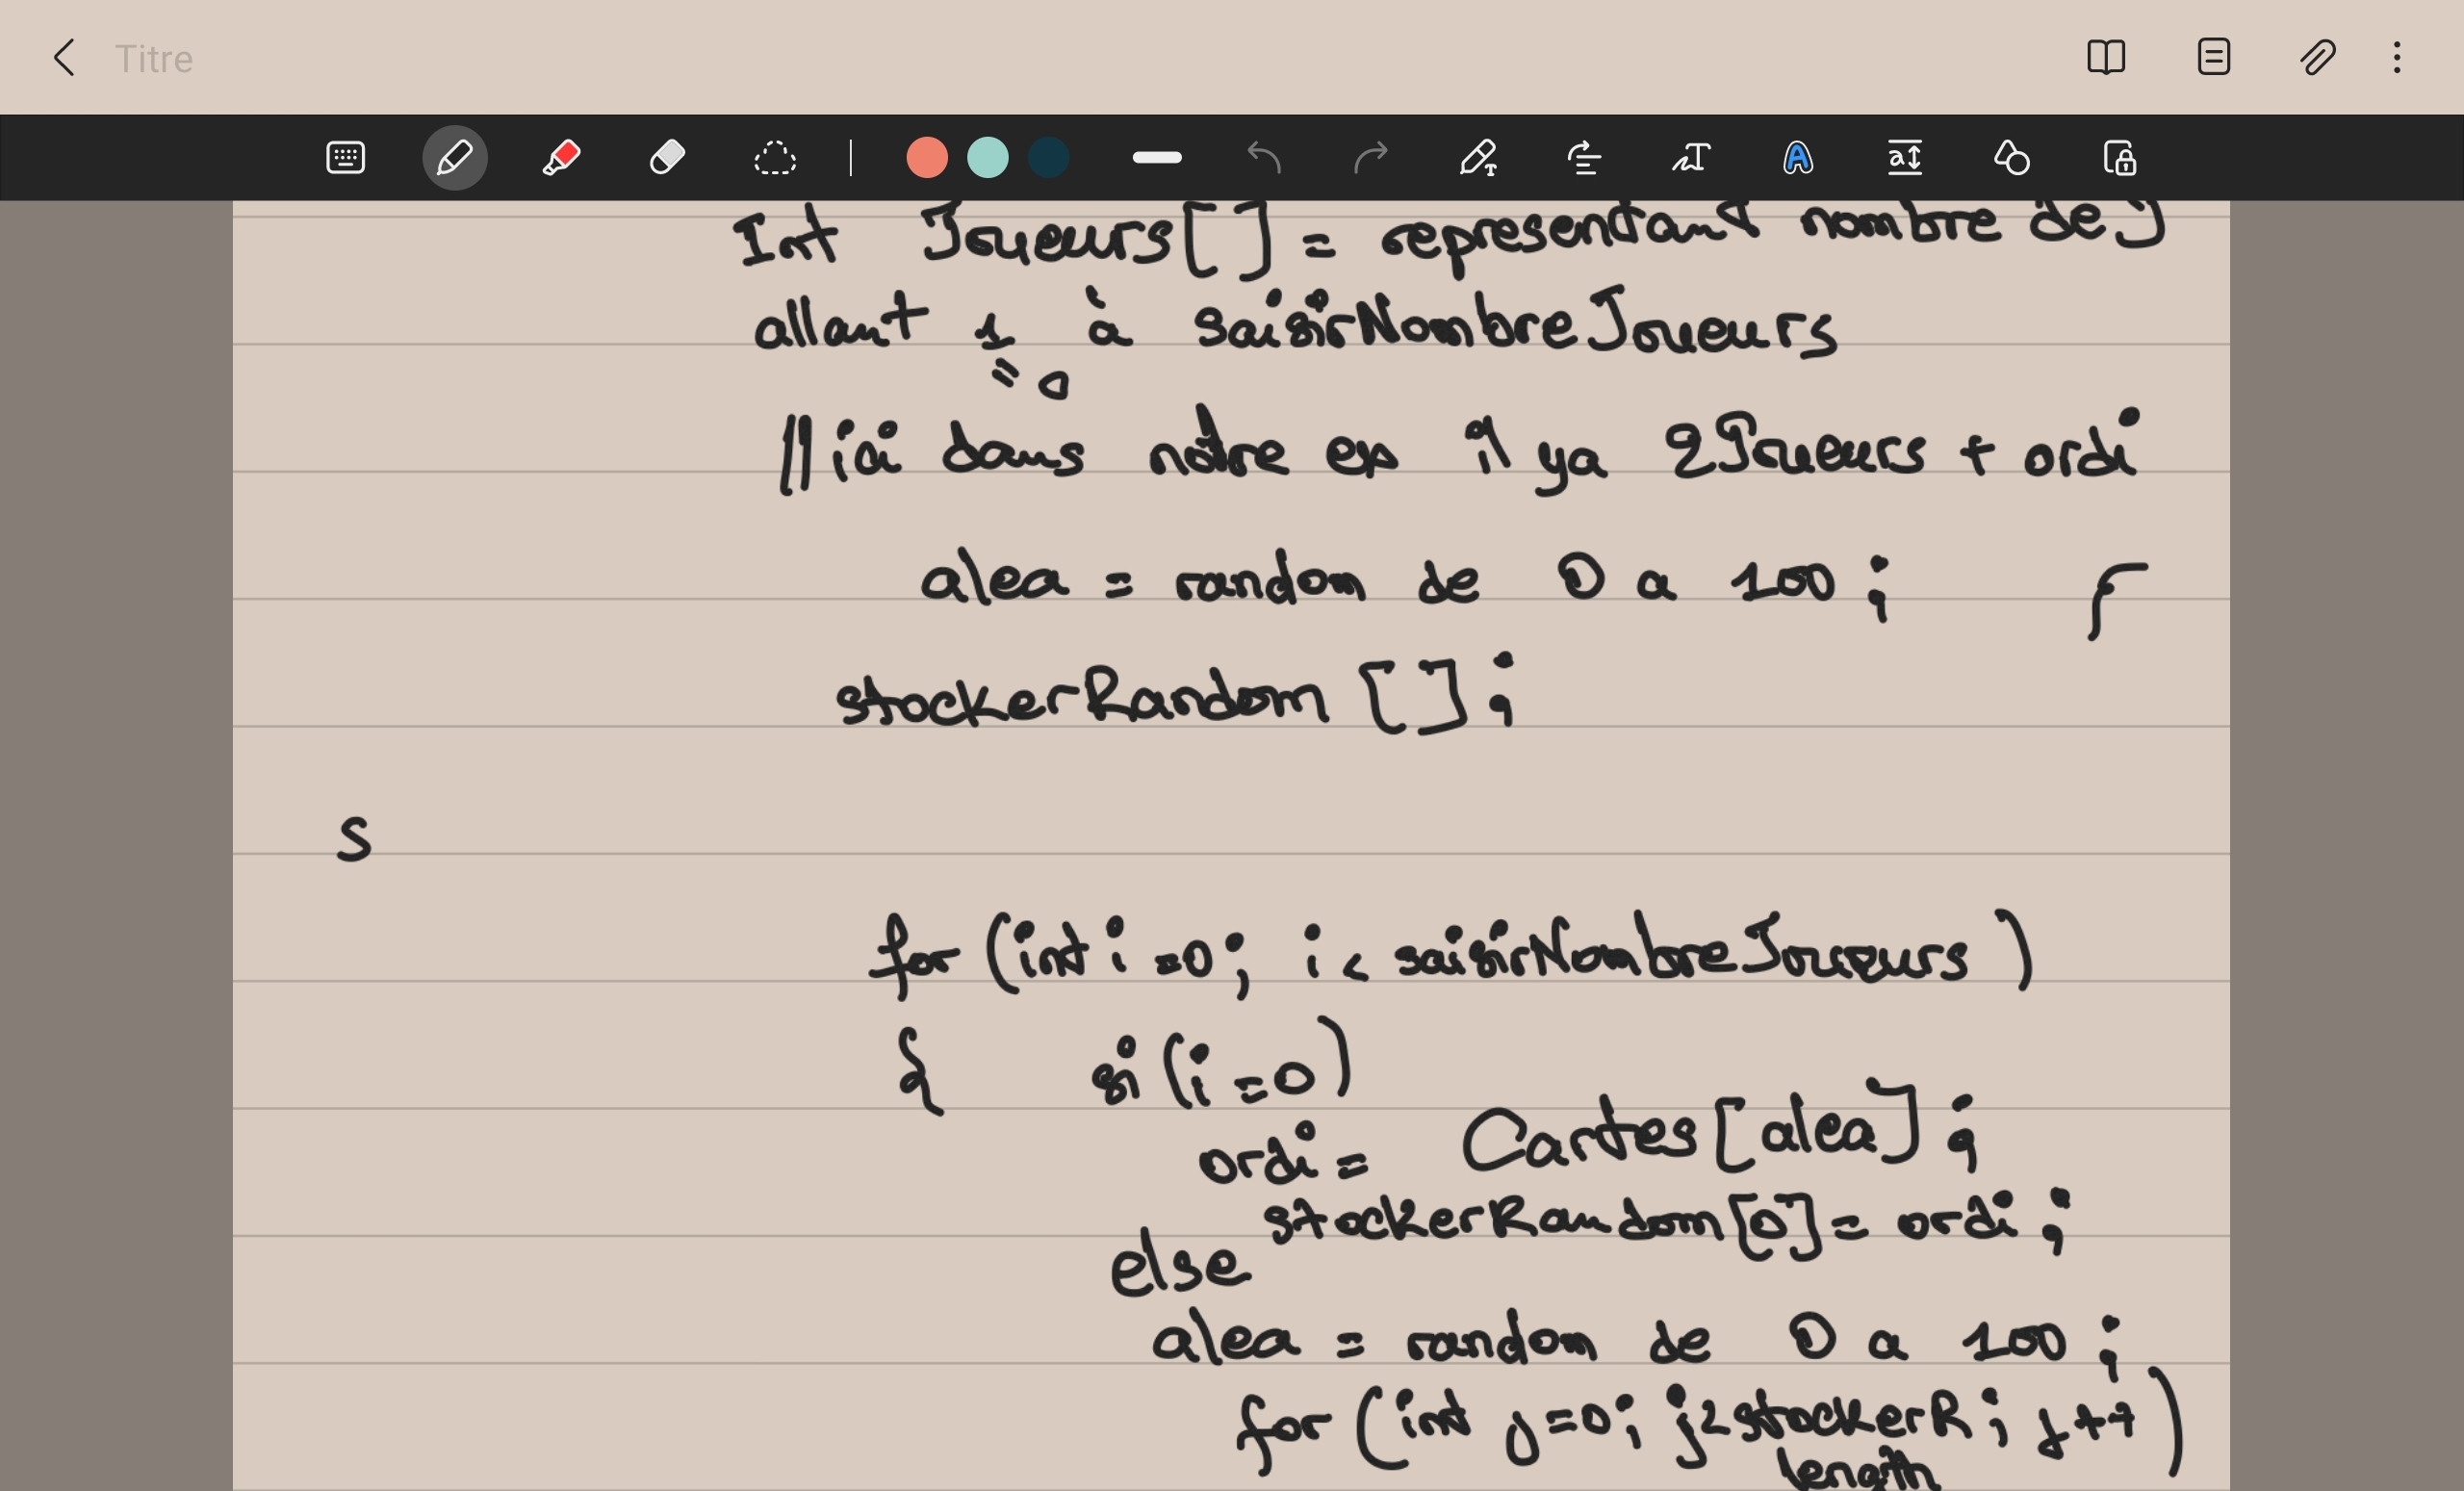 Titre
Int Joueurs[] = representant nombre de J
allant 1 à saisirNombreJoueurs
= 0
|| ici dans notre ex il ya 2Joueurs + ordi
alea = random de 0 a 100 ;
stockerRandom [] ;
s
for (int i =0; i < saisirNombreJoueurs )
{ si (i=0)
ordi = Cartes[alea] ;
stockerRandom[0]= ordi ;
else
alea = random de 0 a 100 ;
for (int j=0; j<stockerR ; j++)
length